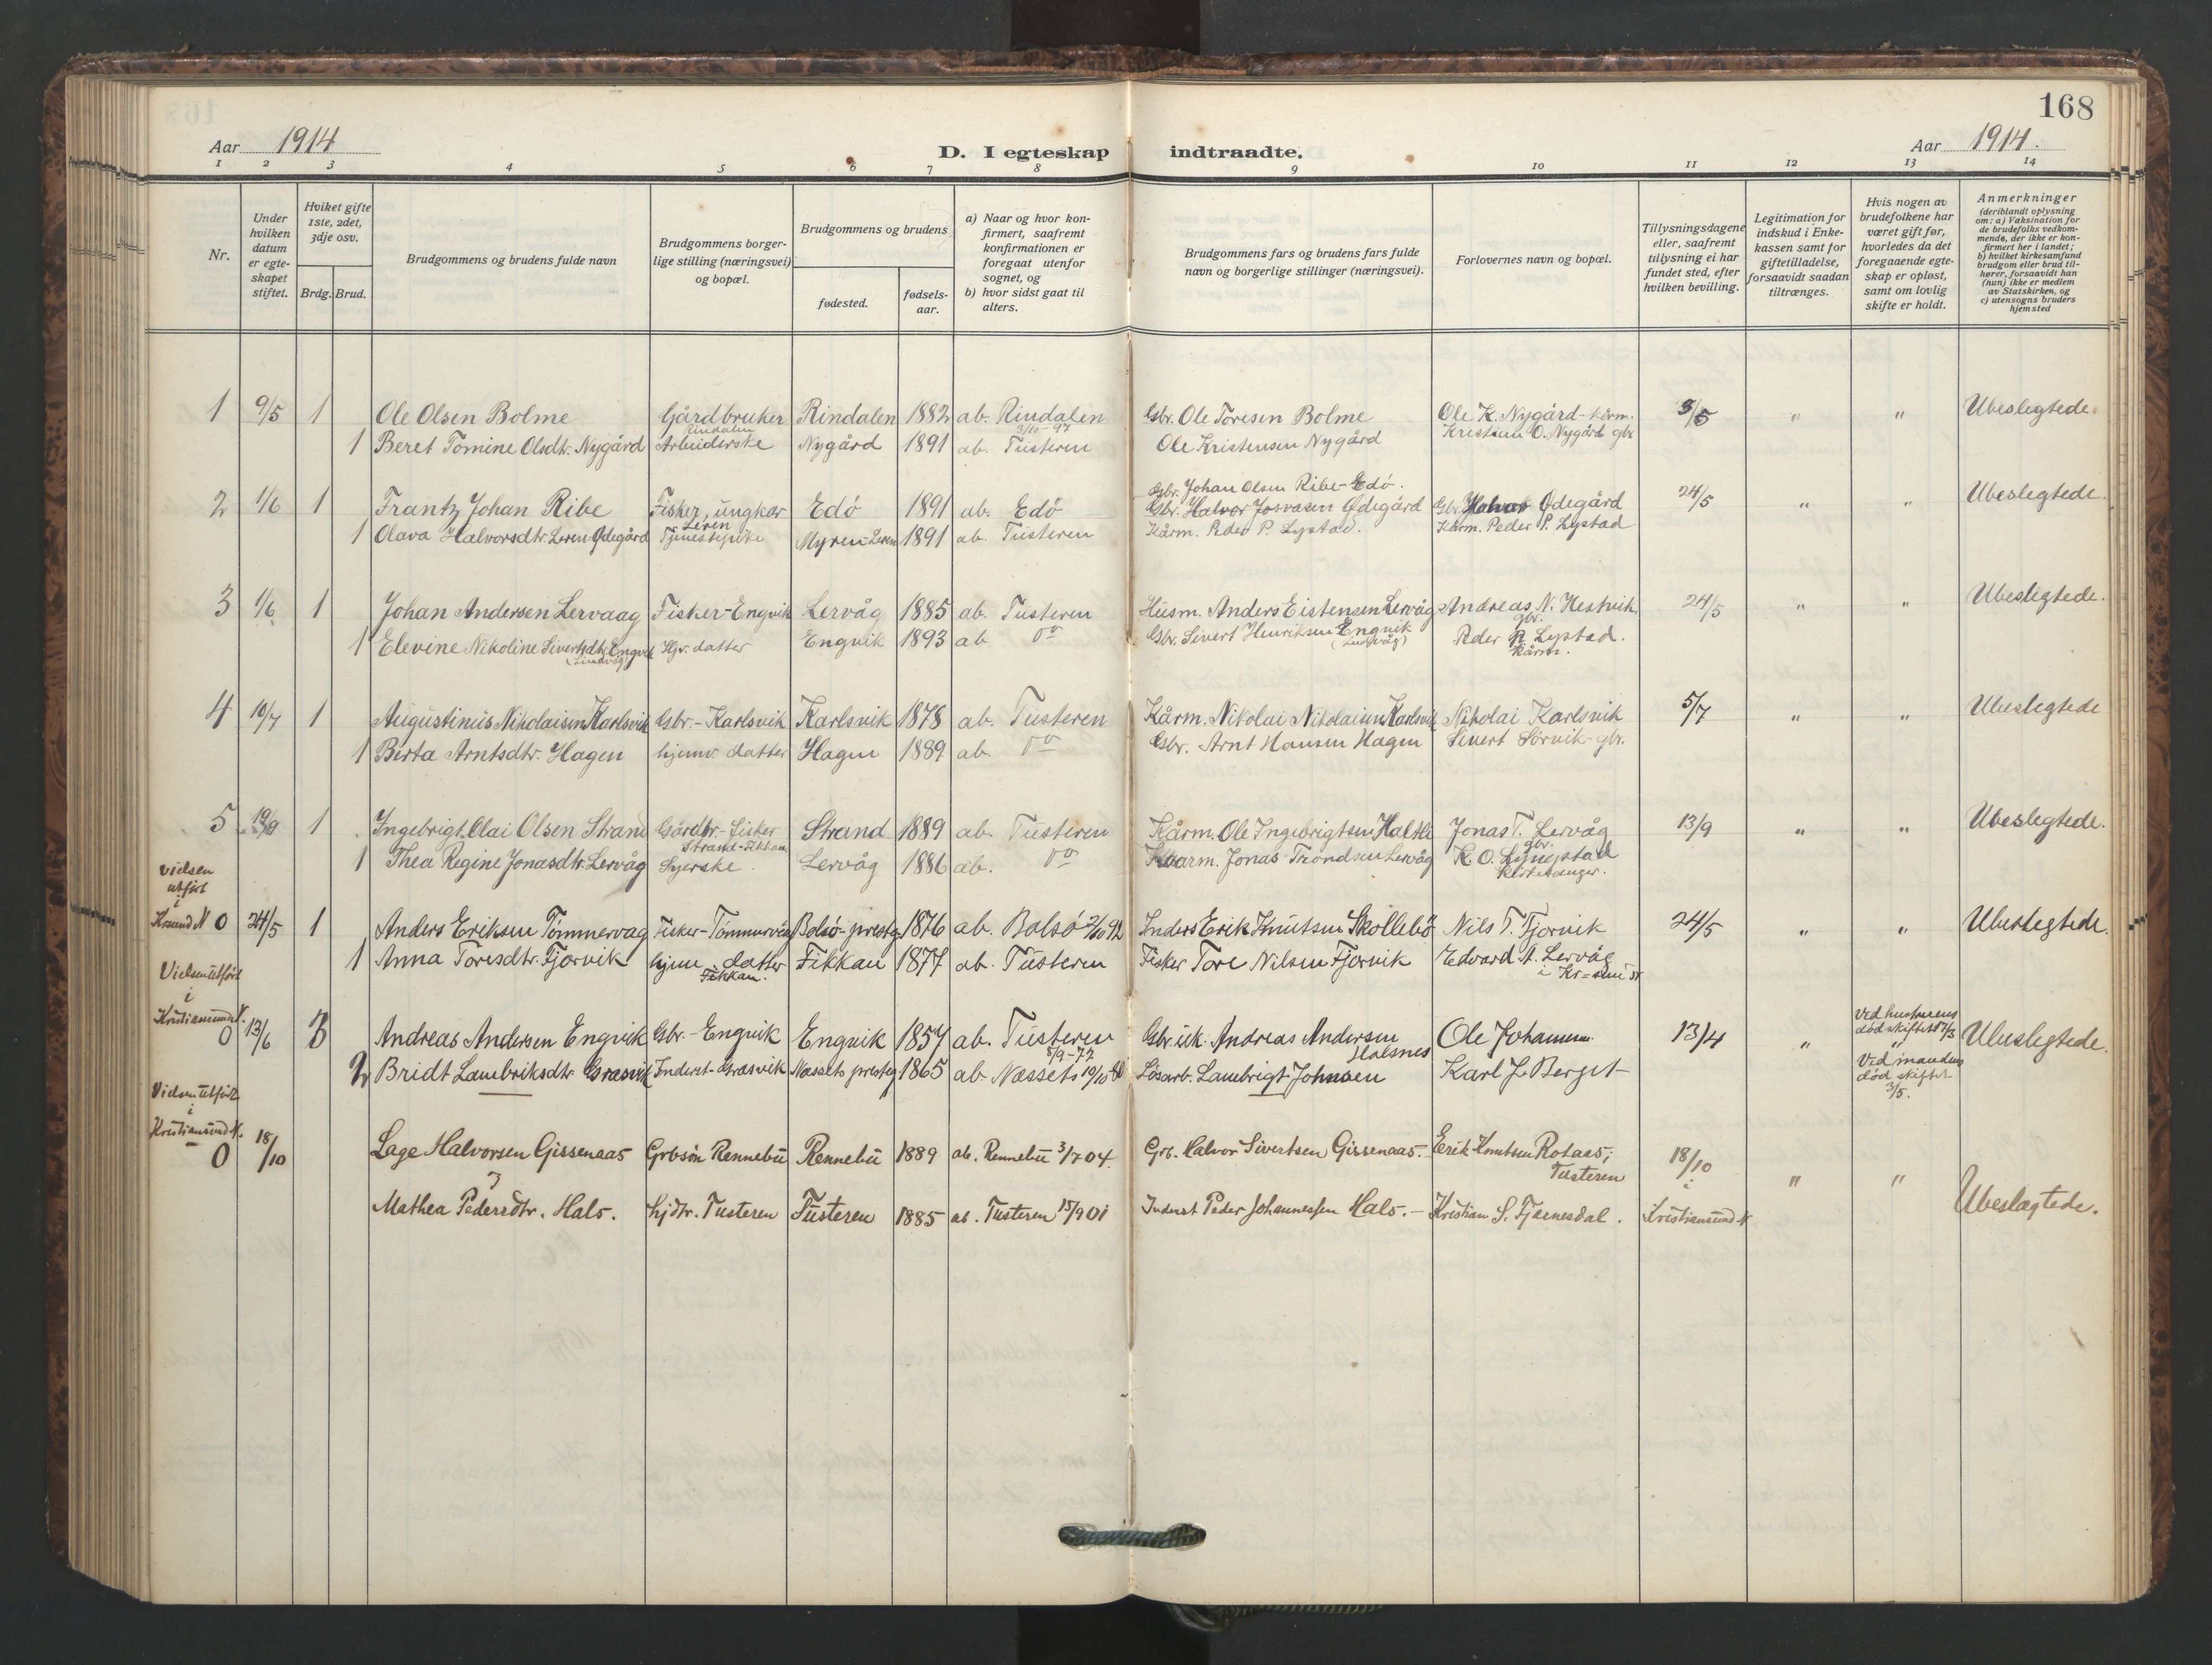 168
Aar 1914
D. I egteskap indtraadte.
Aar 1914.
1 2 3 4 5 6 7 8 9 10 11 12 13 14
Nr.
Under hvilken datum er egteskapet stiftet.
Hviket gifte 1ste, 2det, 3dje osv.
Brdg. Brud.
Brudgommens og brudens fulde navn
Brudgommens borgerlige stilling (næringsvei) og bopæl.
Brudgommens og brudens
fødested.
fødselsaar.
a) Naar og hvor konfirmert, saafremt konfirmationen er foregaat utenfor sognet, og
b) hvor sidst gaat til alters.
Brudgommens fars og brudens fars fulde navn og borgerlige stillinger (næringsvei).
Forlovernes navn og bopæl.
Tillysningsdagene eller, saafremt tillysning ei har fundet sted, efter hvilken bevilling.
Legitimation for indskud i Enkekassen samt for giftetilladelse, forsaavidt saadan tiltrænges.
Hvis nogen av brudefolkene har været gift før, hvorledes da det foregaaende egteskap er opløst, samt om lovlig skifte er holdt.
Anmerkninger (deriblandt oplysning om: a) Vaksination for de brudefolks vedkommende, der ikke er konfirmert her i landet; b) hvilket kirkesamfund brudgom eller brud tilhører, forsaavidt han (hun) ikke er medlem av Statskirken, og c) utensogns bruders hjemsted
1 9/5 1 Ole Olsen Bolme Gårdbruker Rindalen Rindalen 1882 ab. Rindalen 3/10-97 Gbr. Ole Toresen Bolme Ole K. Nygård-kårm. 3/5 " " Ubeslegtede.
1 Beret Tomine Olsdtr. Nygård Arbeiderske Nygård 1891 ab. Tusteren Ole Kristensen Nygård Kristian O. Nygård gbr
2 1/6 1 Frantz Johan Ribe Fisker, ungkar Edö 1891 ab. Edö Gbr. Johan Olsen Ribe-Edö. Gbr. Halvor Josvasen Ødegård Gbr. Halvor Ødegård 24/5 " " Ubeslegtede.
1 Olava Halvorsdtr. Leren-Ødegård Leren Tjenestepike Myren-Leren 1891 ab. Tusteren Kårm. Peder P. Lystad. Kårm. Peder P. Lystad
3 1/6 1 Johan Andersen Lervaag Fisker-Engvik Lervåg 1885 ab. Tusteren Husm. Anders Eistensen Lervåg Andreas N. Hestvik gbr. 24/5 " " Ubeslegtede.
1 Elevine Nikoline Sivertsdtr. Engvik Hjv. datter Engvik 1893 ab do Gbr. Sivert Henriksen Engvik Peder P. Lystad. Kårm.
4 10/7 1 Augustinus Nikolaisen Karlsvik Gbr.-Karlsvik Karlsvik 1878 ab. Tusteren Kårm. Nikolai Nikolaisen Karlsvik Nikolai Karlsvik 5/7 " " Ubeslegtede
1 Berta Arntsdtr. Hagen hjemv. datter Hagen 1889 ab. do Gbr. Arnt Hansen Hagen Sivert Sörvik-gbr.
5 19/9 1 Ingebrigt Olai Olsen Strand Gårdbr.-Fisker Strand-Fikkan Strand 1889 ab. Tusteren Kårm. Ole Ingebrigtsen Haltli Jonas T. Lervåg gbr. 13/9 " " Ubeslegtede.
1 Thea Regine Jonasdtr. Lervåg Syerske Lervåg 1886 ab. do Kaarm. Jonas Trondsen Lervåg K. O. Lyngstad Kirkesanger.
Vielsen utført i Krsund N 0 24/5 1 Anders Eriksen Tömmervag Fisker-Tömmervåg Bolsö-prestg 1876 ab. Bolsö 2/10 92 Inderst Erik Knutsen Skollebö Nils T. Fjorvik 24/5 " " Ubeslegtede.
1 Anna Toresdtr. Fjorvik hjem datter Fikkan. Fikkan 1877 ab. Tusteren Fisker Tore Nilsen Fjorvik Edvard A. Lervåg i Kr=sund N
Vielsen utført i Kristiansund N. 0 13/6 3 Andreas Andersen Engvik Gbr.-Engvik Engvik 1857 ab. Tusteren 8/9-72 Gbr. Andreas Andersen Halsnes Ole Johannesen 13/4 " Ved hustruens død skiftet 17/3 " Ubeslegtede.
2 Bridt Lambriksdtr. Grasvik Inderst-Grasvik Næssets prestg 1865 ab. Næssets 10/10 80 Lösarb. Lambrigt Johnsen Karl J. Berget Ved mandens død skiftet 3/5.
Vielsen utført i Kristiansund N. 0 18/10 Lage Halvorsen Gissenaas Grbsøn Rennebu Rennebu 1889 ab. Rennebu 3/7 04. Grb. Halvor Sivertsen Gissenaas.- Erik Knutsen Rotaas; Tusteren 18/10 i Kristiansund N " " Ubeslægtede.
Mathea Pedersdtr. Hals. Hjdtr. Tusteren Tusteren 1885 ab. Tusteren 15/9 01 Inderst Peder Johannessen Hals.- Kristian S. Fjærnesdal.